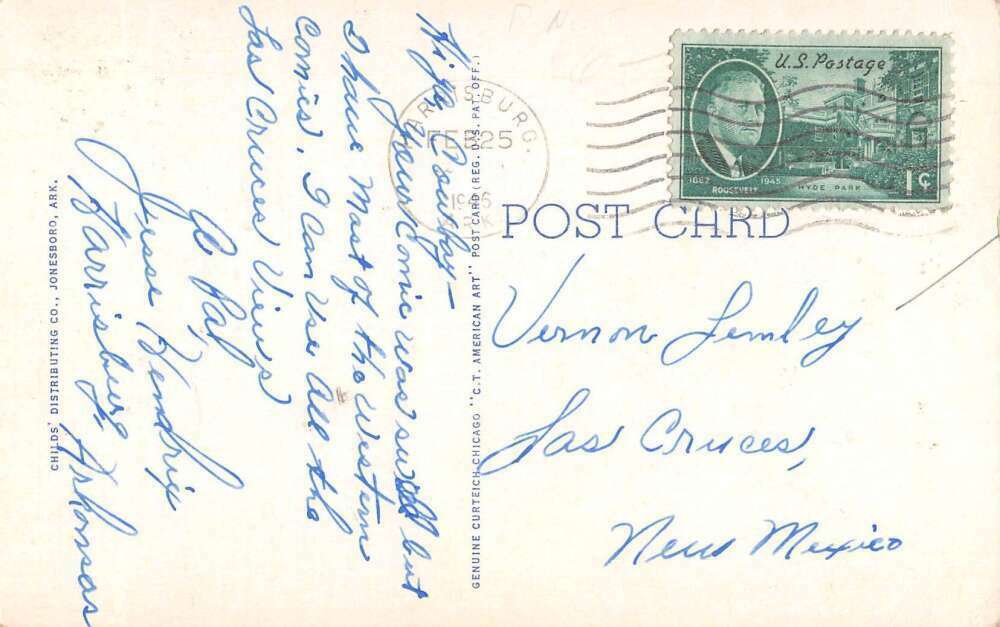 Hi ya Cowboy—
Your Comic was swell but
I have Most of the Western
Comics. I Can Use All the
Las Cruces Views
Ur Pal,
Jesse Hendrix
Harrisburg, Arkansas
CHILDS' DISTRIBUTING CO., JONESBORO, ARK.
GENUINE CURTEICH CHICAGO "C.T. AMERICAN ART" POST CARD (REG. U.S. PAT. OFF.)
HARRISBURG.
FEB 25
1946
ARK
U.S. Postage
1882 1945
ROOSEVELT
HYDE PARK
1¢
POST CARD
Vernon Lemley
Las Cruces,
New Mexico